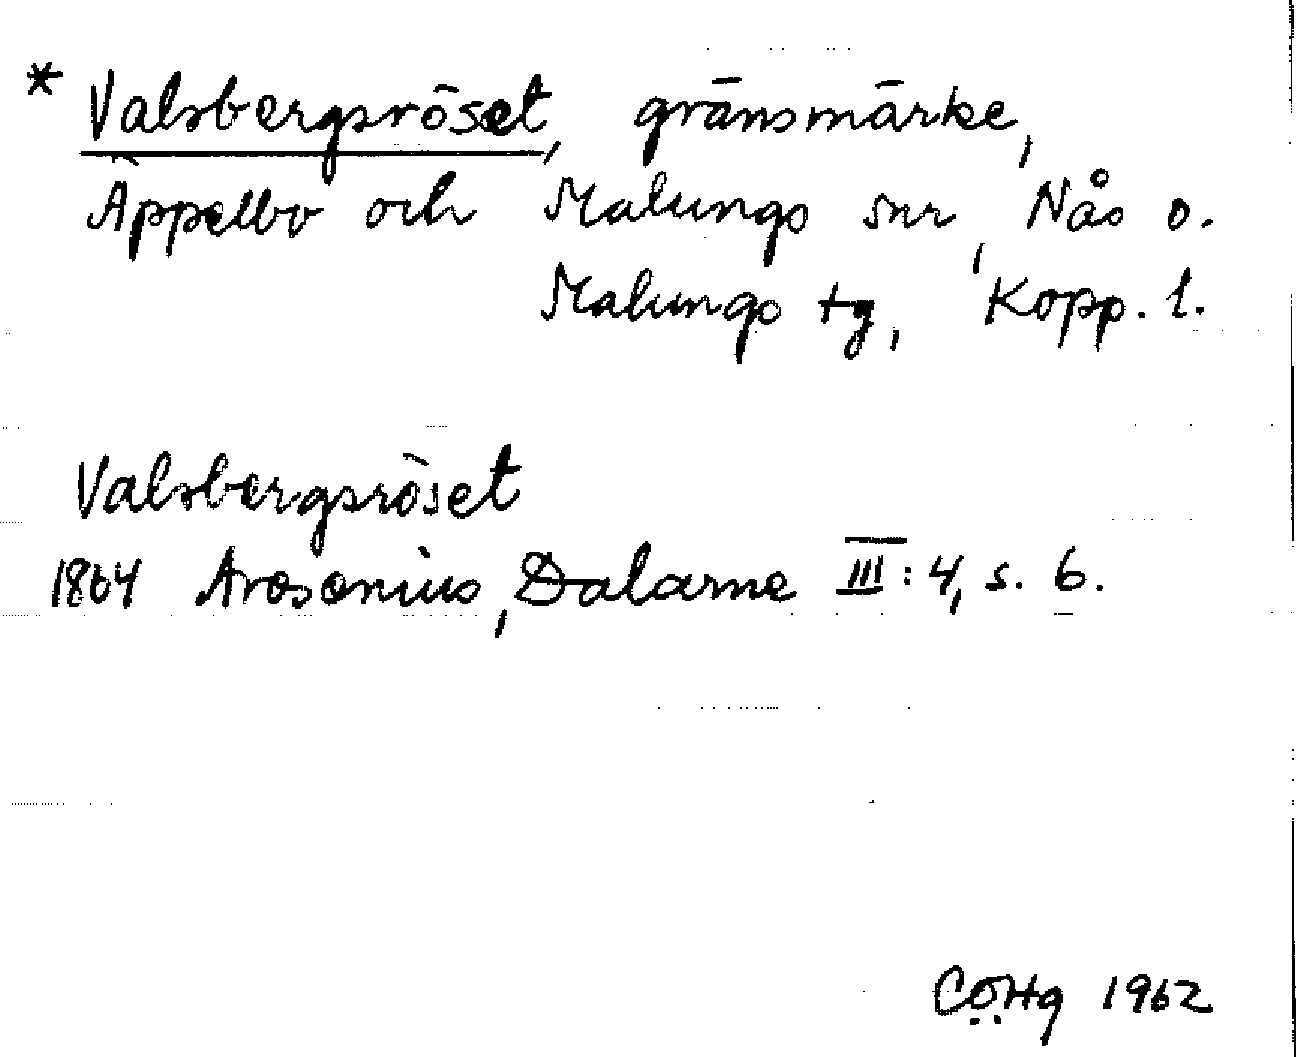 * Valsbergsröset, gränsmärke,
Äppelbo och Malungs snr, Nås o.
Malungs tg, Kopp. l.
Valsbergsröset
1864 Arosenius, Dalarne III: 4, s. 6.
CÖHg 1962